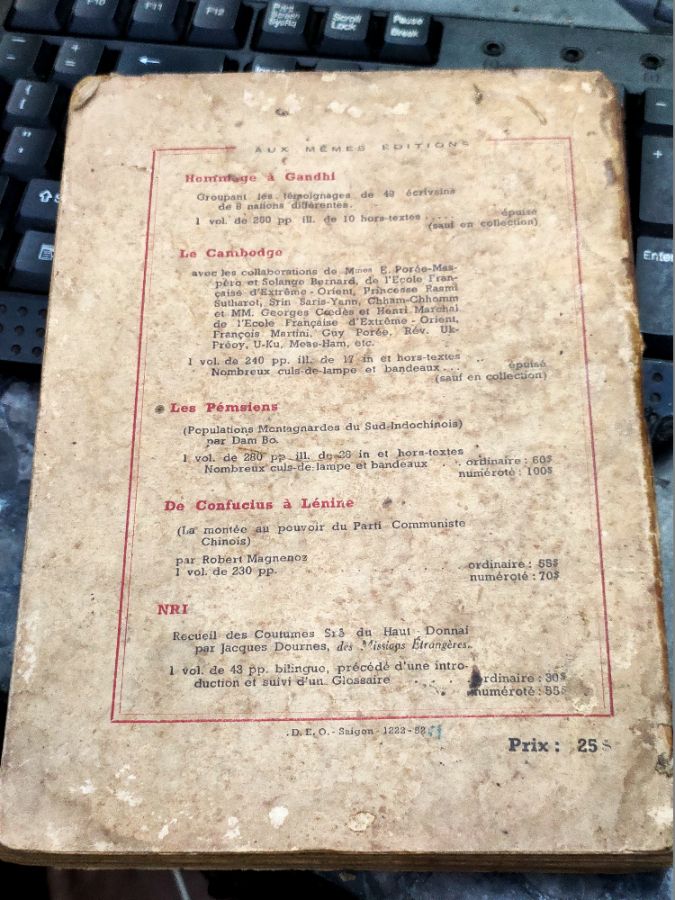 F10
F11
F12
Print
Screen
SysRq
Scroll
Lock
Pause
Break
Insert
Enter
AUX MÊMES ÉDITIONS
Hommage à Gandhi
Groupant les témoignages de 40 écrivains
de 8 nations différentes.
1 vol. de 280 pp ill. de 10 hors-textes ..... épuisé
(sauf en collection)
Le Cambodge
avec les collaborations de Mmes E. Porée-Mas-
péro et Solange Bernard, de l'Ecole Fran-
çaise d'Extrême-Orient, Princesse Rasmi
Sutharot, Srin Saris-Yann, Chham-Chhomm
et MM. Georges Cœdès et Henri Marchal
de l'Ecole Française d'Extrême-Orient,
François Martini, Guy Porée, Rév. Uk-
Préoy, U-Ku, Meas-Ham, etc.
1 vol. de 240 pp. ill. de 17 in et hors-textes .. épuisé
Nombreux culs-de-lampe et bandeaux ... (sauf en collection)
Les Pémsiens
(Populations Montagnardes du Sud-Indochinois)
par Dam Bo.
1 vol. de 280 pp ill. de 28 in et hors-textes
Nombreux culs-de-lampe et bandeaux . . ordinaire : 60$
numéroté : 100$
De Confucius à Lénine
(La montée au pouvoir du Parti Communiste
Chinois)
par Robert Magnenoz
1 vol. de 230 pp. ordinaire : 55$
numéroté : 70$
NRI
Recueil des Coutumes Srê du Haut-Donnai
par Jacques Dournes, des Missions Étrangères.
1 vol. de 43 pp. bilingue, précédé d'une intro-
duction et suivi d'un Glossaire ..... ordinaire : 30$
numéroté : 35$
.D.E.O.- Saigon - 1223-52
Prix : 25$